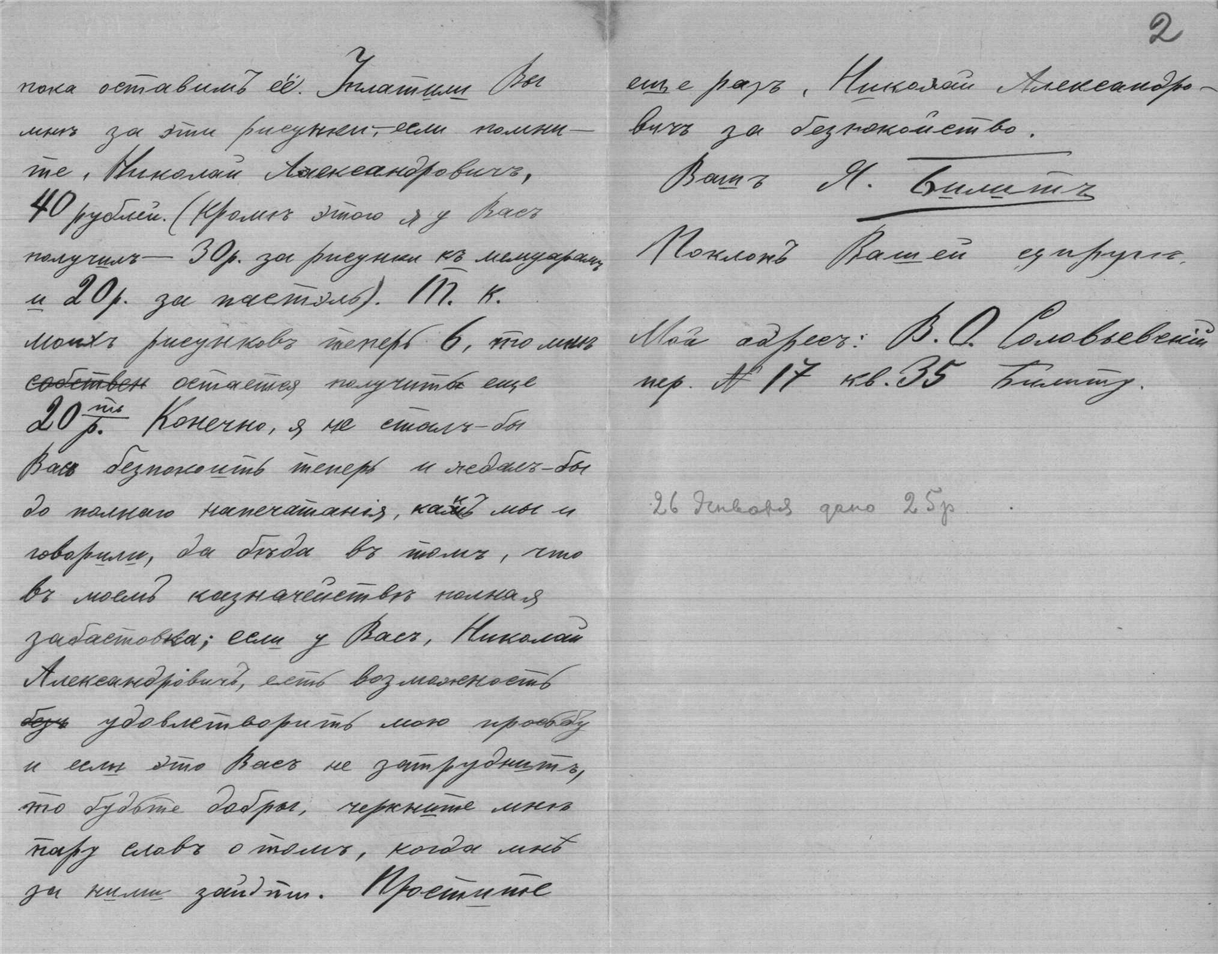 2
пока оставимъ её. Уплатили Вы
мнѣ за эти рисунки, если помни-
те, Николай Александровичъ,
40 рублей. (Кромѣ этого я у Васъ
получилъ — 30р. за рисунки къ мемуарамъ
и 20р. за пастэль). Т. к.
моихъ рисунковъ теперь 6, то мнѣ
собствен остается получить еще
20 ть р. Конечно, я не сталъ-бы
Васъ безпокоить теперь и ждалъ-бы
до полнаго напечатанія, какъ мы и
говорили, да бѣда въ томъ, что
въ моемъ казначействѣ полная
забастовка; если у Васъ, Николай
Александровичъ, есть возможность
безъ удовлетворить мою просьбу
и если это Васъ не затруднитъ,
то будьте добры, черкните мнѣ
пару словъ о томъ, когда мнѣ
за ними зайдти. Простите
еще разъ, Николай Александро-
вичъ за безпокойство.
Вашъ Я. Билитъ
Поклонъ Вашей супругѣ.
Мой адресъ: В.О. Соловьевскій
пер. № 17 кв. 35 Билиту.
26 Января дано 25р